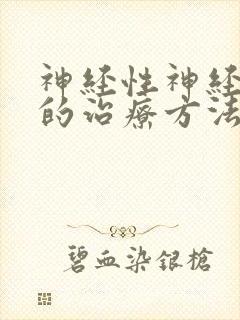 神经性神经
的治疗方法
碧血染银槍